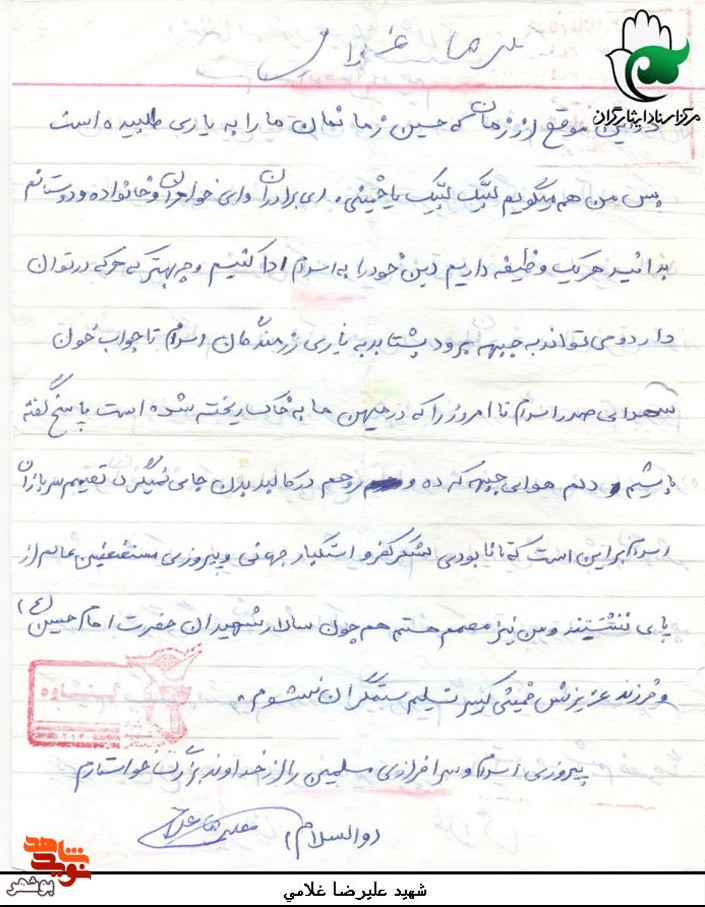 علیرضا غلامی
مرکز اسناد ایثارگران
در این موقع از زمان که حسین زمانمان ما را به یاری طلبیده است
پس من هم میگویم لبیک لبیک یا خمینی. ای برادران وای خواهران و خانواده و دوستانم
بدانید هر یک وظیفه داریم دین خود را به اسلام ادا کنیم و چه بهتر که هر که در توان
دارد و می تواند به جبهه برود بشتابد به یاری رزمندگان اسلام تا جواب خون
شهدای صدر اسلام تا امروز را که در میهن ما به خاک ریخته شده است پاسخ گفته
باشیم و دلم هوای جبهه کرده و روحم در کالبد بدن جای نمیگیرد تصمیم سربازان
اسلام بر این است که تا نابودی لشگر کفر و استکبار جهانی و پیروزی مستضعفین عالم از
پای ننشینند و من نیز مصمم هستم هم چون سالار شهیدان حضرت امام حسین (ع)
و فرزند عزیزش خمینی کبیر تسلیم ستمگران نشوم.
پیروزی اسلام و سرافرازی مسلمین را از خداوند بزرگ خواستارم
(والسلام)
گناوه
نوید شاهد
بوشهر
شهید علیرضا غلامي